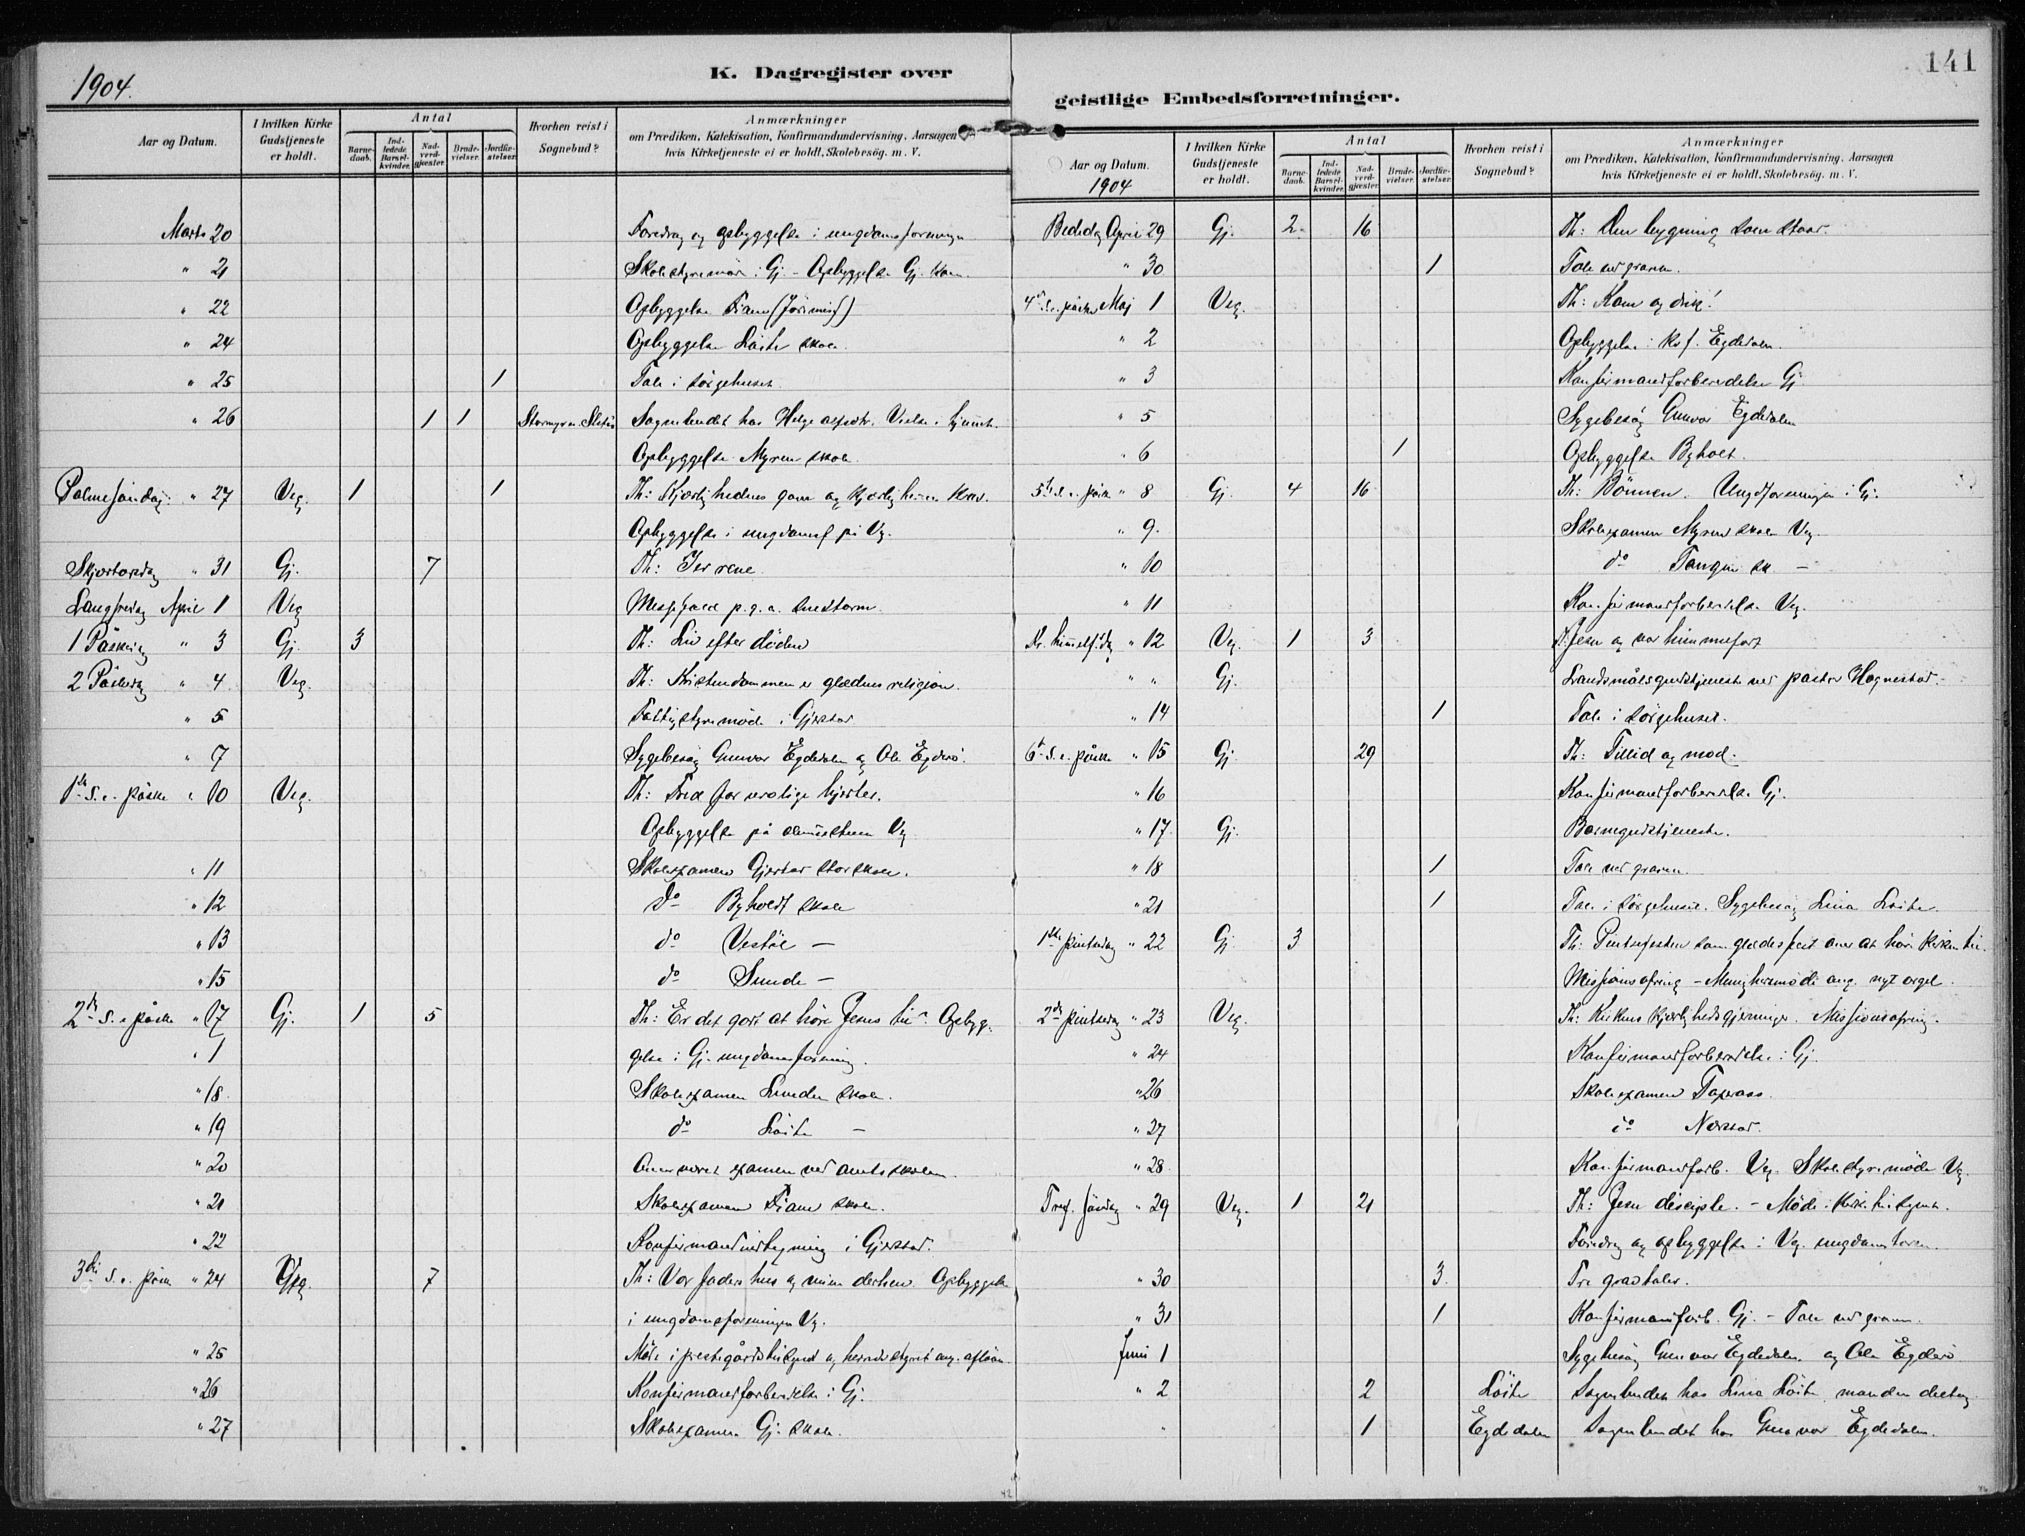 1904.
K. Dagregister over
Aar og Datum.
I hvilken Kirke Gudstjeneste er holdt.
Antal
Barnedaab.
Indledede Barselkvinder.
Nadverdgjester.
Brudevielser.
Jordfæstelser.
Hvorhen reist i Sognebud?
Anmærkninger
om Prædiken, Katekisation, Konfirmandundervisning, Aarsagen
hvis Kirketjeneste ei er holdt, Skolebesøg. m. V.
Marts 20 Foredrag og opbyggelse i ungdomsforeningen
" 21 Skolestyremøde i Gj. - Opbyggelse Gj.
" 22 Opbyggelse Fiane
" 24 Opbyggelse Løite skole.
" 25 1 Tale i sørgehuset
" 26 1 1 Sognebudet hos Helge Vielse i
Opbyggelse Myren skole.
Palmesøndag " 27 Veg. 1 1 Th: Kjærlighedens gave og kjærlighedens krav.
Opbyggelse i ungdomsf på Vg.
Skjærtorsdag " 31 Gj. 7 Th: I er rene.
Langfredag April 1 Veg Messefald p. g. a. snestorm.
1 Påskedag " 3 Gj. 3 Th: Liv efter døden
2 Påskedag " 4 Veg. Th: Kristendommen er glædens religion.
" 5 Fattigstyremøde i Gjerstad
" 7 Sygebesøg Gunvor Egdedalen og Ole Egderø.
1ste S. e. påske " 10 Veg. Th: Fred for urolige hjerter.
Opbyggelse på Vg
" 11 Skolexamen Gjerstad storskole.
" 12 do Byholdt skole
" 13 do Vestøl -
" 15 do Sunde -
2den S. e. påske " 17 Gj. 1 5 Th: Er det godt at høre Jesus til. Opbyg-
" 1 gelse i Gj. ungdomsforening.
" 18 Skolexamen Lunden skole.
" 19 do Løite -
" 20 Overværet examen ved amtsskolen
" 21 Skolexamen Fiane skole.
" 22 Konfirmandindtegning i Gjerstad.
3die S. e. påske " 24 Veg. 7 Th: Vor faders hus og veien derhen. Opbyggelse
i ungdomsforeningen Vg.
" 25 Møde i prestegårdstilsynet og herredsstyret ang.
" 26 Konfirmandforberedelse i Gj.
" 27 Skolexamen Gj. skole.
141
geistlige Embedsforretninger.
Aar og Datum.
1904
I hvilken Kirke Gudstjeneste er holdt.
Antal
Barnedaab.
Indledede Barselkvinder.
Nadverdgjester.
Brudevielser.
Jordfæstelser.
Hvorhen reist i Sognebud?
Anmærkninger
om Prædiken, Katekisation, Konfirmandundervisning, Aarsagen
hvis Kirketjeneste ei er holdt, Skolebesøg. m. V.
Bededag April 29 Gj. 2 16 Th: Den bygning som staar.
" 30 1 Tale ved graven.
4de S. e. påske Maj 1 Veg. Th: Kom og drik!
" 2 Opbyggelse i Egdedalen.
" 3 Konfirmandforberedelse Gj
" 5 Sygebesøg Gunvor Egdedalen
" 6 1 Opbyggelse Byholt.
5te S. e. påske " 8 Gj. 4 16 Th: Bønnen. Ungdforeningen i Gj.
" 9. Skolexamen Myren skole Veg.
" 10 do Tangen sk. -
" 11 Konfirmandforberedelse Veg.
Kr. himmelf.dag " 12 Veg. 1 3 Th: Jesu og vor himmelfart
" " Gj. Landsmålsgudstjeneste ved pastor Hognestad.
" 14 1 Tale i sørgehuset.
6te S. e. påske " 15 Gj 29 Th: Tillid og mod.
" 16 Konfirmandforberedelse Gj.
" 17 Gj. Barnegudstjeneste.
" 18 1 Tale ved graven.
" 21 1 Tale i sørgehuset. Sygebesøg Lina Løite.
1ste pintsedag " 22 Gj 3 Th: Pintsefesten som glædesfest over at høre kirken til.
Missionsofring - Menighedsmøde ang. nyt orgel.
2den pintsedag " 23 Veg. Th: Kirkens kjærlighedsgjerninger. Missionsofring.
" 24 Konfirmandforberedelse i Gj.
" 26 Skolexamen
" 27 do Næstad.
" 28 Konfirmandforb. Veg. Skolestyremøde Vg.
Tref. søndag " 29 Veg. 1 21 Th: Jesu disciple. - Møde i kirketilsynet.
Foredrag og opbyggelse i Veg. ungdomsforen.
" 30 3 Tre gravtaler.
" 31 1 Konfirmandforb. Gj. - Tale ved graven.
Juni 1 Sygebesøg Gunvor Egdedalen og Ole Egderø
" 2 2 Løite Sognebudet hos Lina Løite, manden deltog
" 1 Egdedalen Sognebudet hos Gunvor Egdedalen.